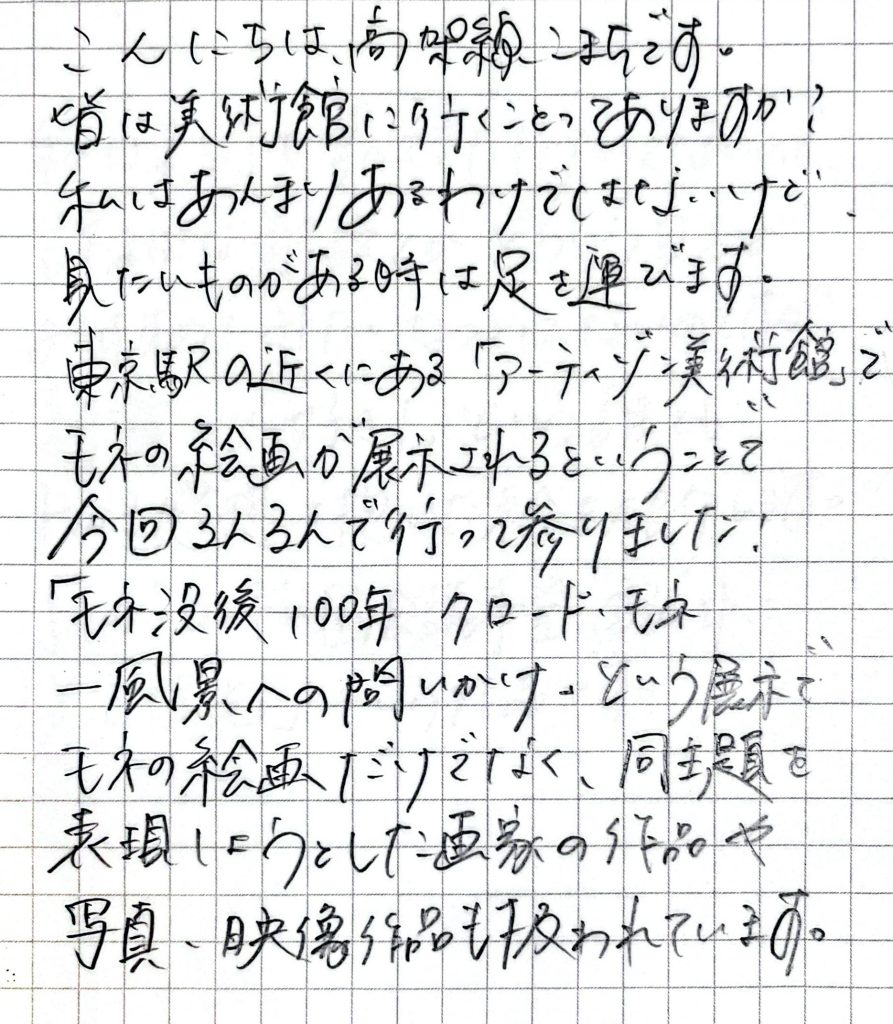 こんにちは、高架線こまちです。
皆は美術館に行くことってありますか?
私はあんまりあるわけではないけど、
見たいものがある時は足を運びます。
東京駅の近くにある「アーティゾン美術館」で
モネの絵画が展示されるということで
今回るんるんで行って参りました!
「モネ没後100年 クロード・モネ
―風景への問いかけ」という展示で
モネの絵画だけでなく、同主題を
表現しようとした画家の作品や
写真、映像作品も扱われています。